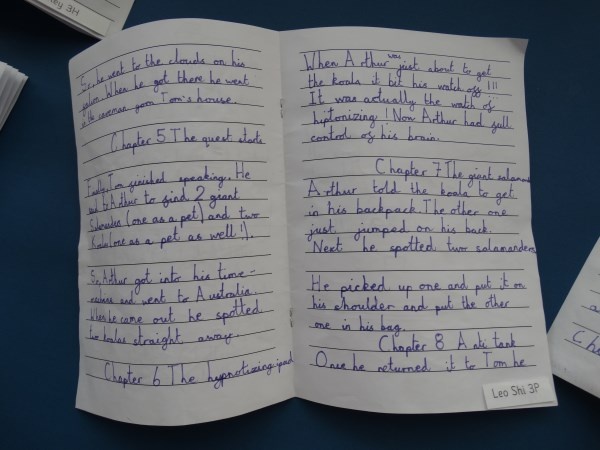 ley 3H
So he went to the clouds on his
When he got there he went
caveman Tom's house.
Chapter 5 The quest starts
Finally Tom speaking. He
said to Arthur to find 2 giant
(one as a pet) and two
Koala (one as a pet as well!).
So Arthur got into his time-
machine and went to Australia.
When he came out he spotted
two koalas straight away.
Chapter 6 The hypnotizing
When Arthur was just about to get
the koala it bit his watch off !!!
It was actually the watch of
hiptonizing! Now Arthur had full
control of his brain.
Chapter 7 The giant salamand
Arthur told the koala to get
in his backpack. The other one
just jumped on his back.
Next he spotted two salamanders
He picked up one and put it on
his shoulder and put the other
one in his bag.
Chapter 8 A tank
Once he returned it to Tom he
Leo Shi 3P